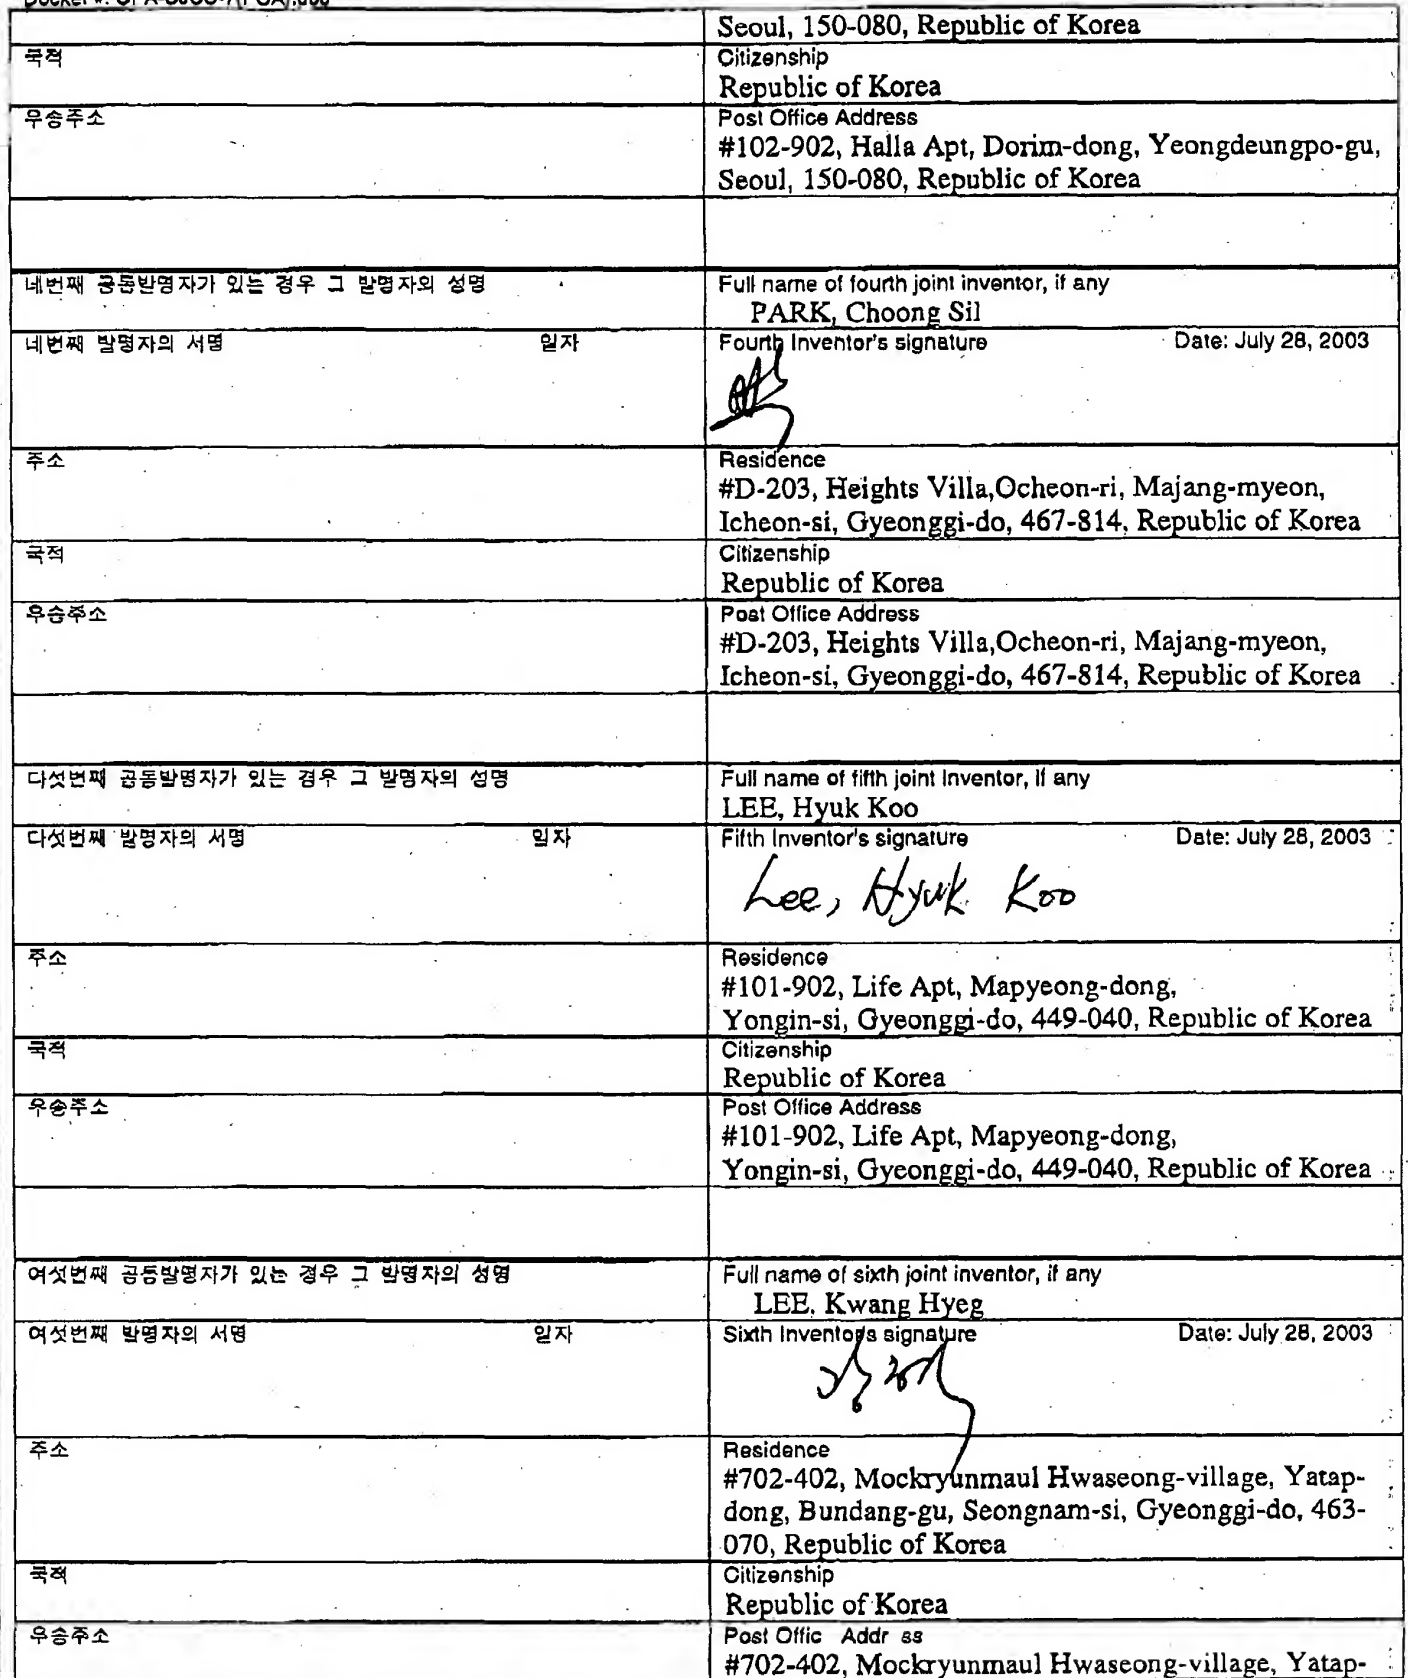 Seoul, 150-080, Republic of Korea
국적
Citizenship
Republic of Korea
우송주소
Post Office Address
#102-902, Halla Apt, Dorim-dong, Yeongdeungpo-gu,
Seoul, 150-080, Republic of Korea
네번째 공동발명자가 있는 경우 그 발명자의 성명
Full name of fourth joint inventor, if any
PARK, Choong Sil
네번째 발명자의 서명 일자
Fourth Inventor's signature Date: July 28, 2003
주소
Residence
#D-203, Heights Villa,Ocheon-ri, Majang-myeon,
Icheon-si, Gyeonggi-do, 467-814, Republic of Korea
국적
Citizenship
Republic of Korea
우송주소
Post Office Address
#D-203, Heights Villa,Ocheon-ri, Majang-myeon,
Icheon-si, Gyeonggi-do, 467-814, Republic of Korea
다섯번째 공동발명자가 있는 경우 그 발명자의 성명
Full name of fifth joint inventor, if any
LEE, Hyuk Koo
다섯번째 발명자의 서명 일자
Fifth Inventor's signature Date: July 28, 2003
Lee, Hyuk Koo
주소
Residence
#101-902, Life Apt, Mapyeong-dong,
Yongin-si, Gyeonggi-do, 449-040, Republic of Korea
국적
Citizenship
Republic of Korea
우송주소
Post Office Address
#101-902, Life Apt, Mapyeong-dong,
Yongin-si, Gyeonggi-do, 449-040, Republic of Korea
여섯번째 공동발명자가 있는 경우 그 발명자의 성명
Full name of sixth joint inventor, if any
LEE, Kwang Hyeg
여섯번째 발명자의 서명 일자
Sixth Inventor's signature Date: July 28, 2003
주소
Residence
#702-402, Mockryunmaul Hwaseong-village, Yatap-
dong, Bundang-gu, Seongnam-si, Gyeonggi-do, 463-
070, Republic of Korea
국적
Citizenship
Republic of Korea
우송주소
Post Offic Addr ss
#702-402, Mockryunmaul Hwaseong-village, Yatap-